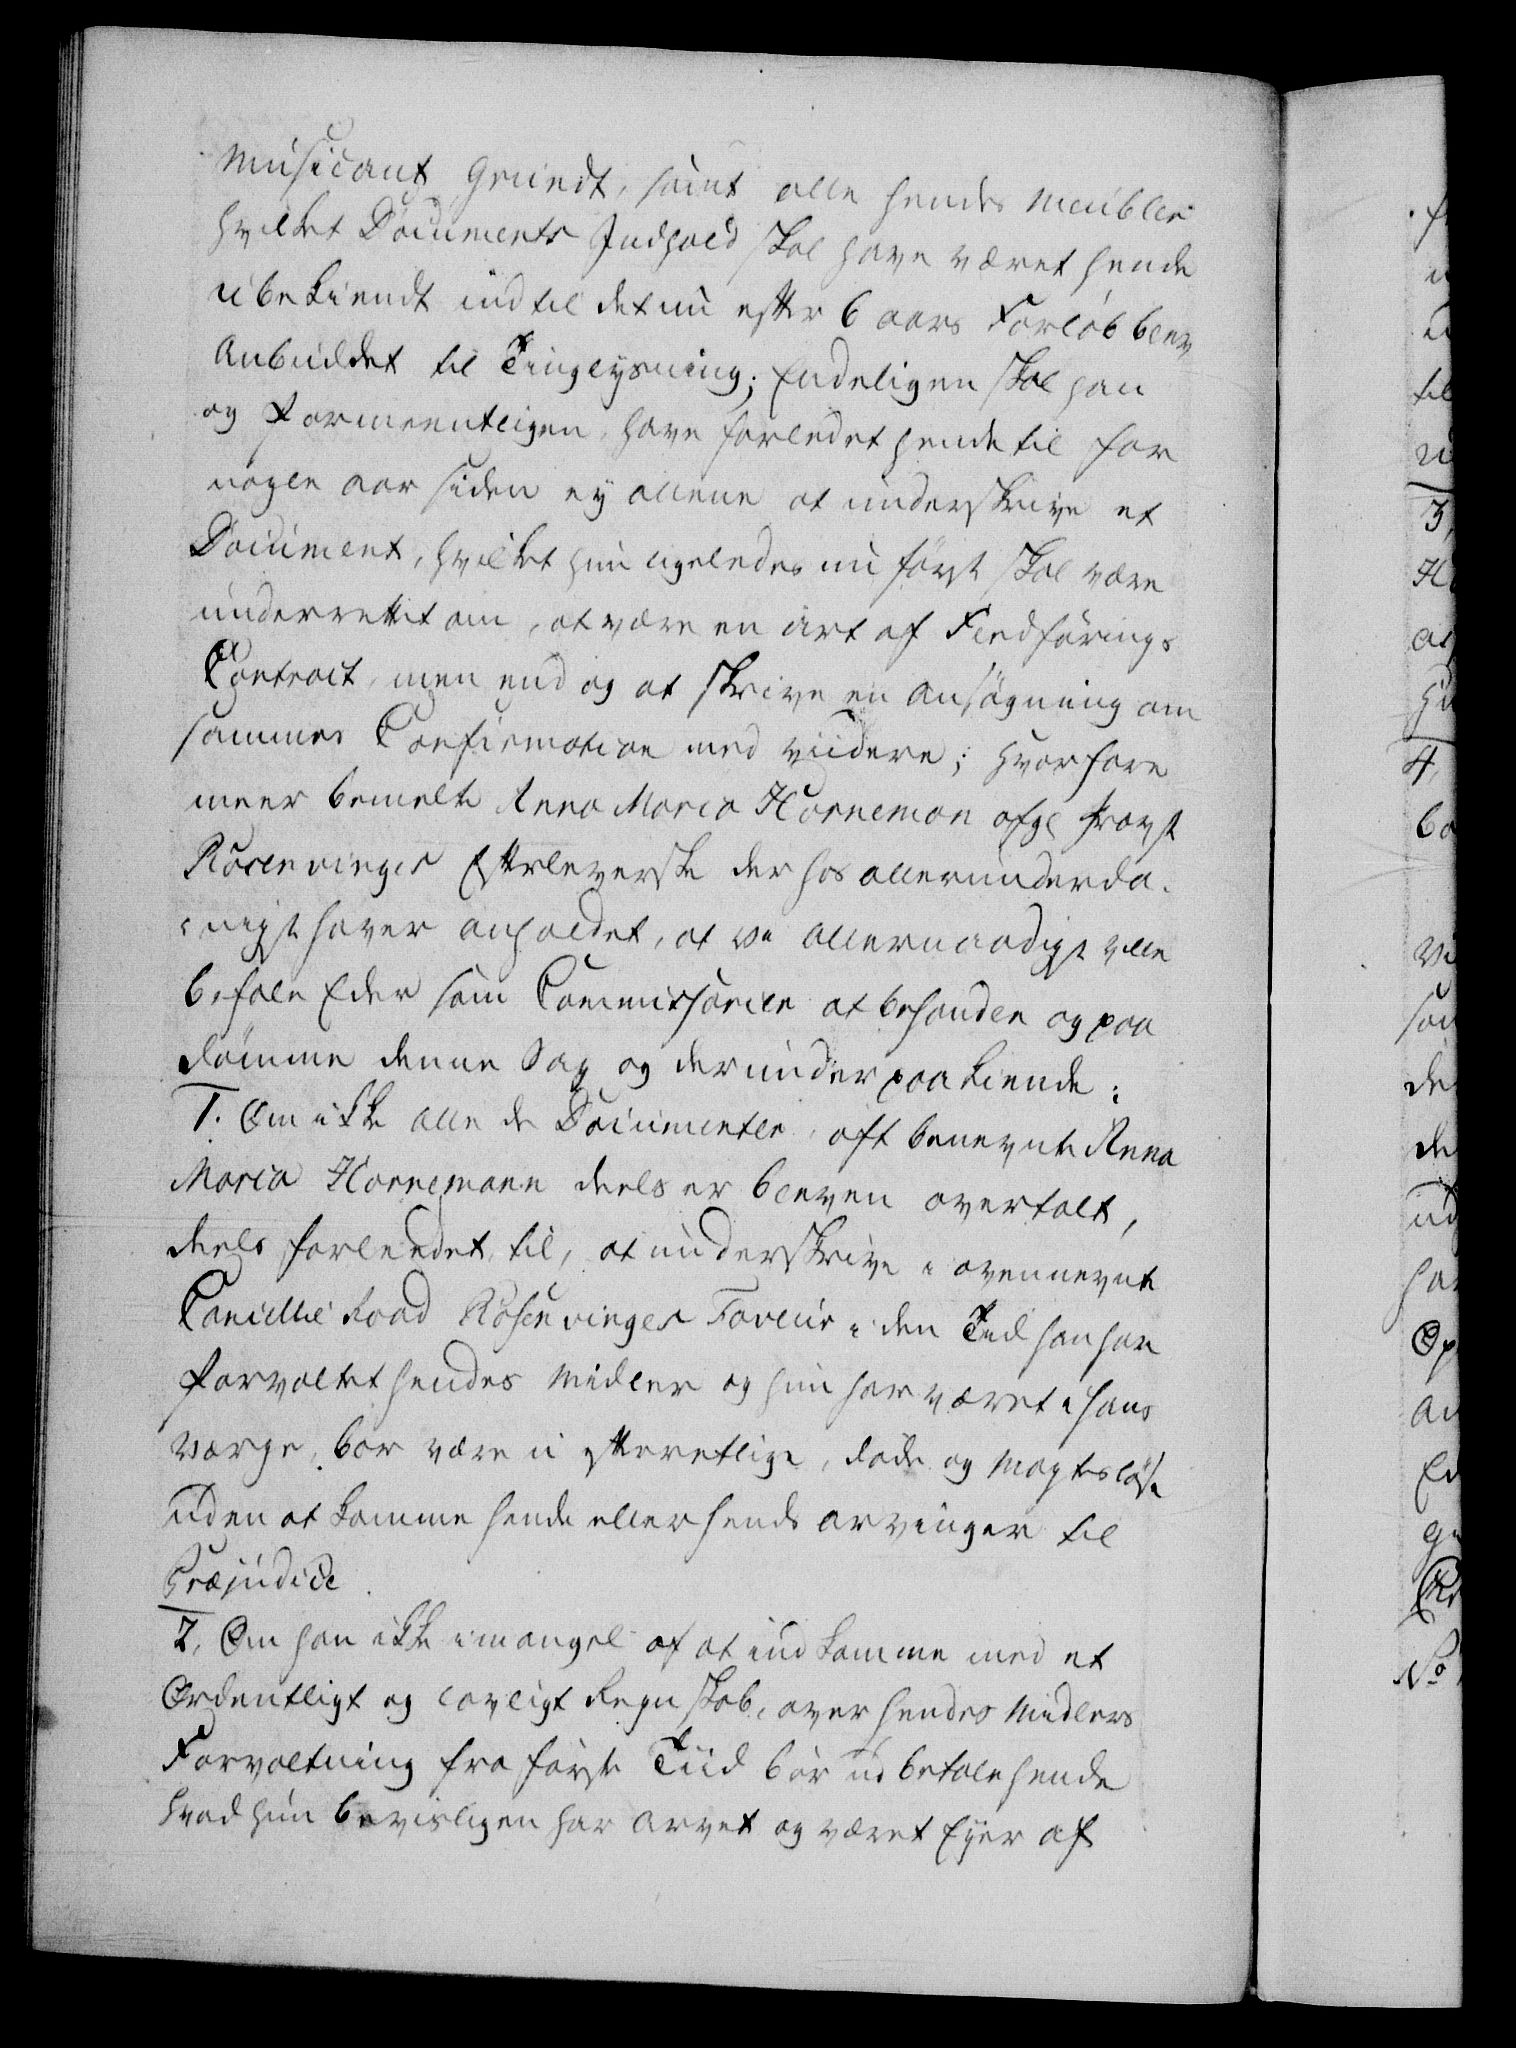 Musicant Grundt, samt alle hendes Meubler
hvilket Documents Indhold skal have været hende
ubekiendt indtil det nu efter 6 aars Forløb blev
Anbuddet til Tinglysning; Endeligen skal han
og formeentligen, have forledet hende til for
nogle aar siden ey allene at underskrive et
Document, hvilket hun ligeledes nu først skal være
underrettet om, at være en art af Fledførings
Contract, men end og at skrive en ansøgning om
sammes Confirmation med viidere; hvorfore
meer bemelte Anna Maria Horneman afg: Provst
Rosenvinges Efterleverske der hos allerunderda-
-nigst haver anholdet, at we allernaadigst ville
befale Eder som Commissarier at behandle og paa
dømme denne Sag og derunder paakiende:
1. Om ikke alle de Documenter, oft benevnte Anna
Maria Hornemann deels er bleven overtalt,
deels forleedet til, at underskrive i ovennevnte
Cancellie Raad Rosenvinges Faveur i den Tid han har
forvaltet hendes Midler og hun har været i hans
værge, bør være u-efterretlige, døde og Magtesløse
uden at komme hende eller hends arvinger til
Præjudice.
2. Om han ikke i mangel af at indkomme med et
Ordentligt og lovligt Regnskab, over hendes Midlers
Forvaltning fra første Tiid bør udbetale hende
hvad hun beviisligen har arvet og været Eyer af